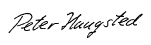 Peter Haugsted